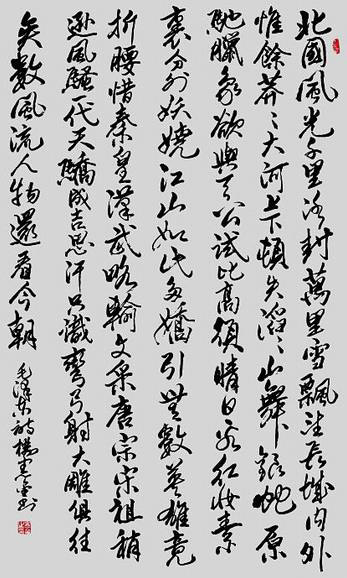 北國風光千里冰封萬里雪飄望長城内外
惟餘莽〻大河上下頓失滔〻山舞銀蛇原
馳臘象欲與天公試比高須晴日看紅妝素
裹分外妖嬈江山如此多嬌引無數英雄竞
折腰惜秦皇漢武略輸文采唐宗宋祖稍
遜風騷一代天驕成吉思汗只識彎弓射大雕俱往
矣數風流人物還看今朝
毛澤東詩